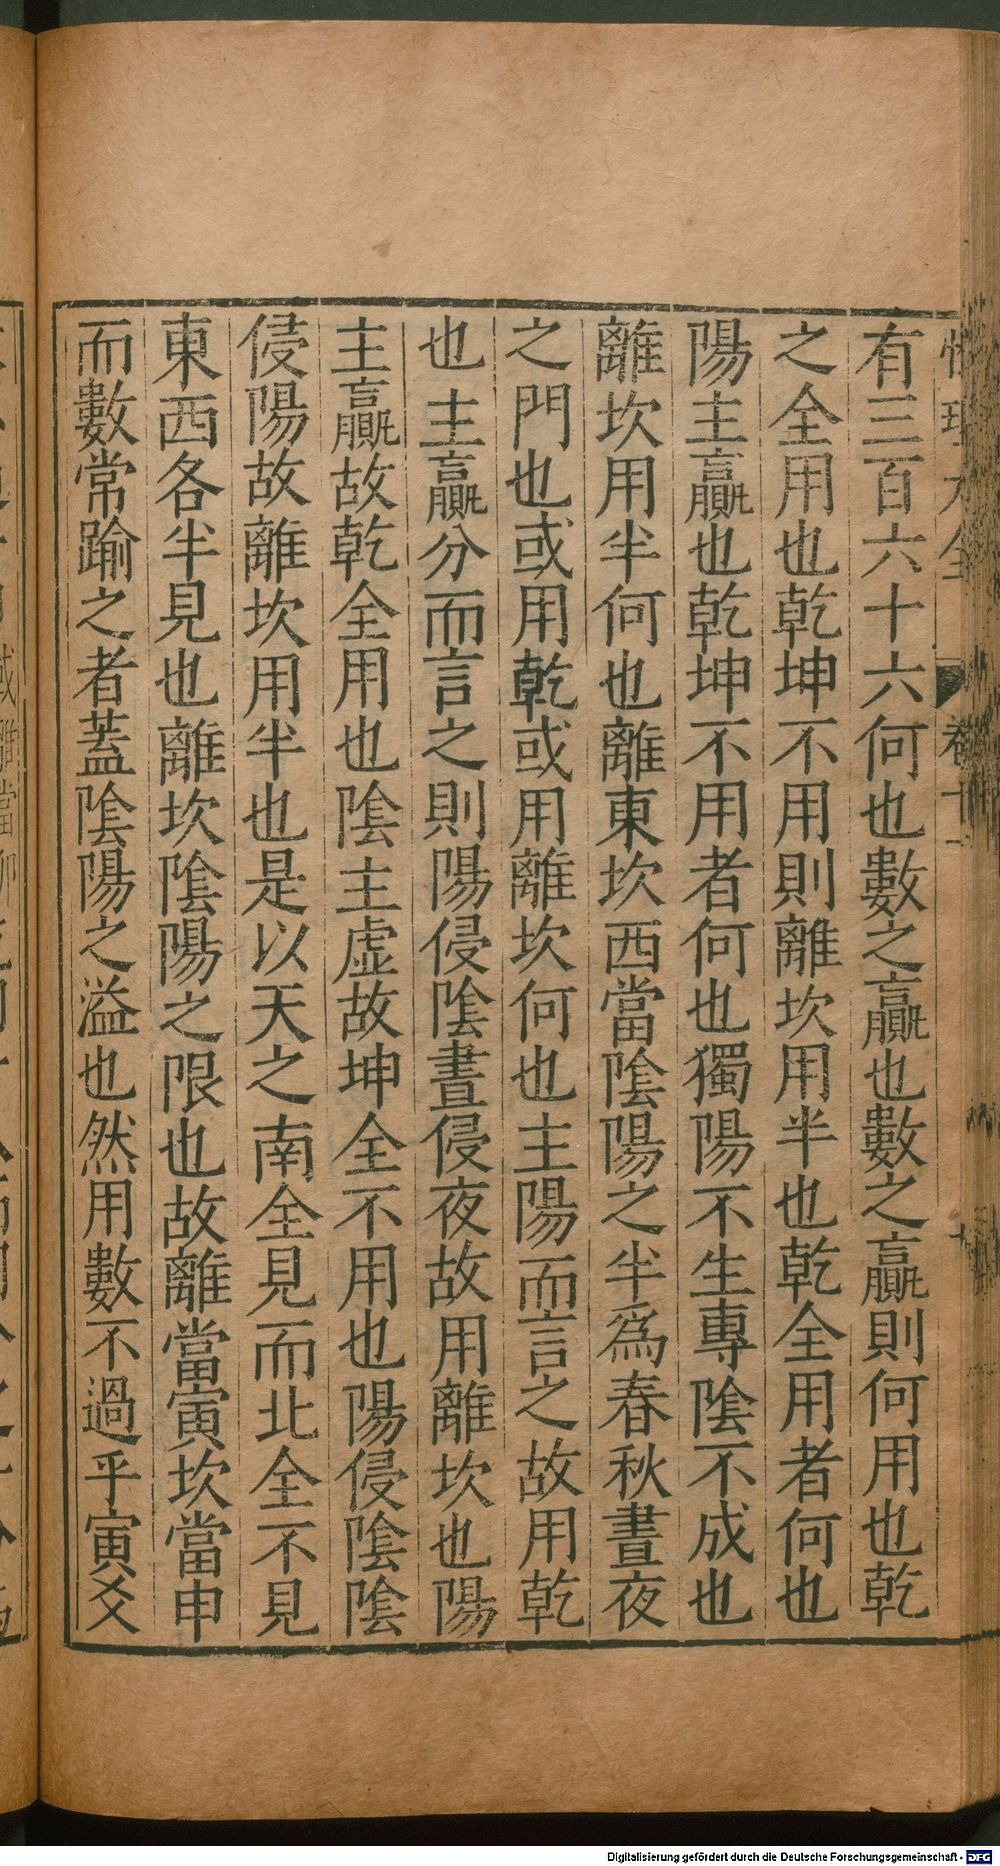 有三百六十六何也數之贏也數之贏則何用也乾
之全用也乾坤不用則離坎用半也乾全用者何也
陽主贏也乾坤不用者何也獨陽不生專隂不成也
離坎用半何也離東坎西當隂陽之半爲春秋晝夜
之門也或用乾或用離坎何也主陽而言之故用乾
也主贏分而言之則陽侵隂晝侵夜故用離坎也陽
主贏故乾全用也隂主虛故坤全不用也陽侵隂隂
侵陽故離坎用半也是以天之南全見而北全不見
東西各半見也離坎隂陽之限也故離當寅坎當申
而數常踰之者蓋隂陽之溢也然用數不過乎寅爻
Digitalisierung gefördert durch die Deutsche Forschungsgemeinschaft - DFG